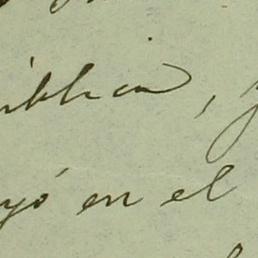 ública, y
yó en el